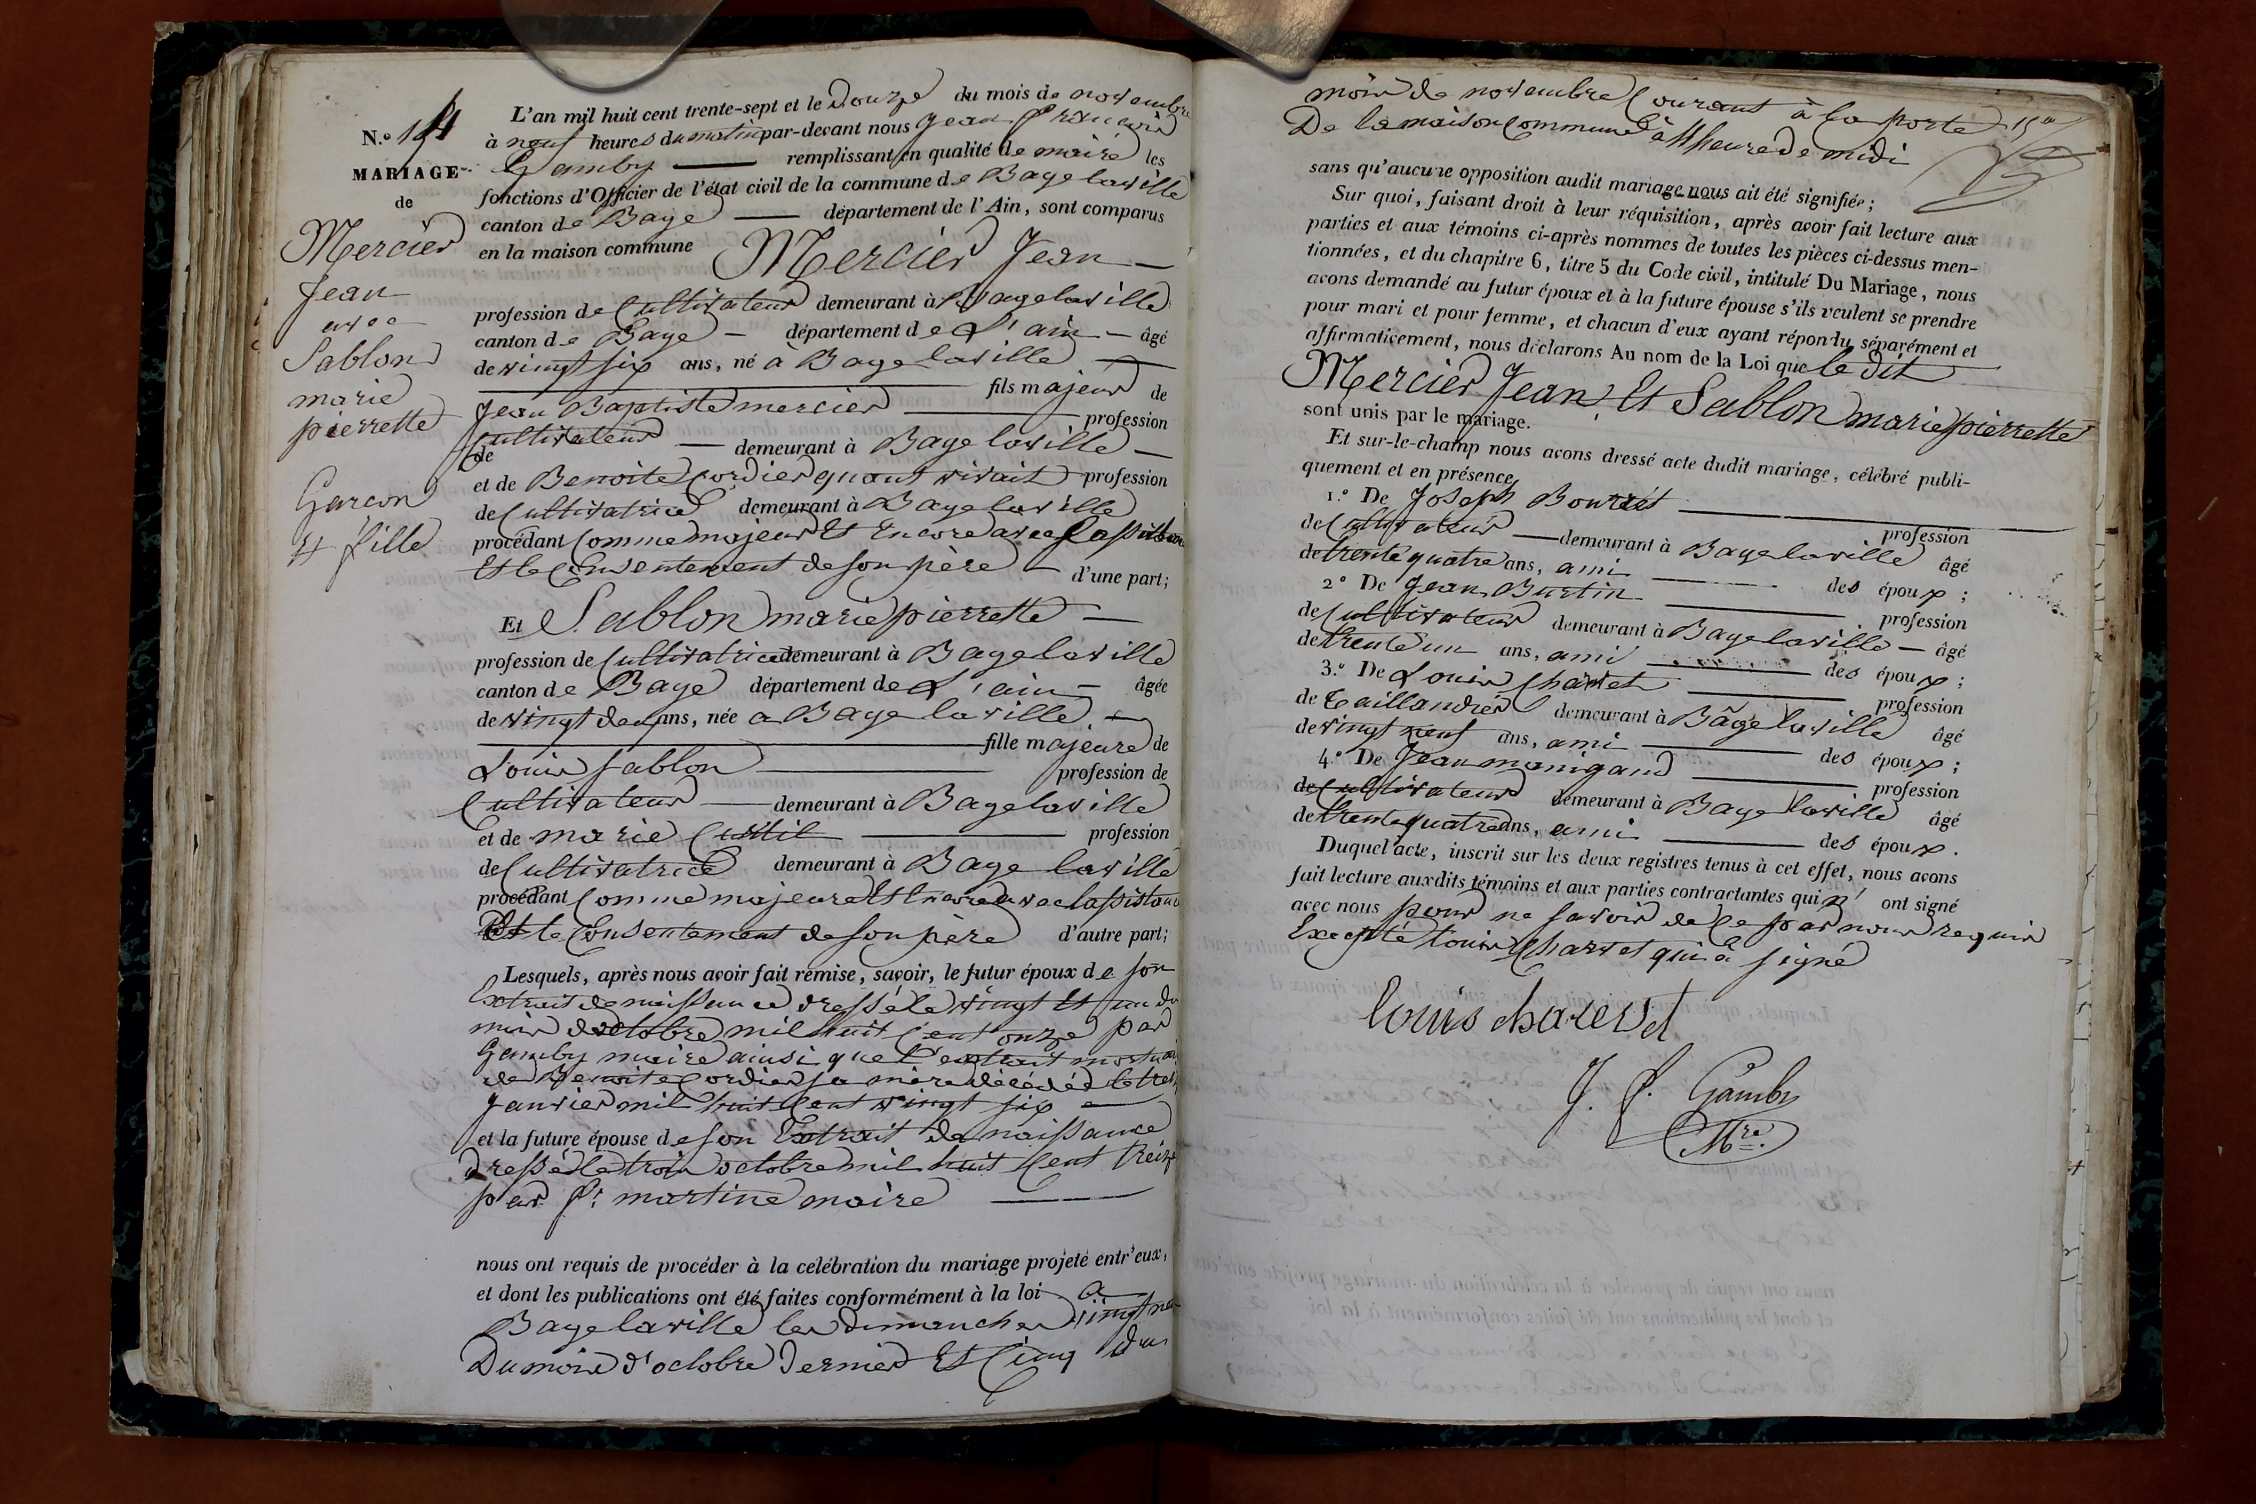 N.° 14
MARIAGE
de
Mercier
Jean
avec
Sablon
marie
pierrette
Garcon
et fille
L'an mil huit cent trente-sept et le Douze du mois de novembre
à neuf heures du matin par-devant nous Jean François
Gamby remplissant en qualité de maire les
fonctions d'Officier de l'état civil de la commune de Bage laville
canton de Bage département de l'Ain, sont comparus
en la maison commune Mercier Jean
profession de Cultivateur demeurant à Bage laville
canton de Bage département de L'ain âgé
de vingt six ans, né à Bage laville
fils majeur de
Jean Baptiste mercier profession
de Cultivateur demeurant à Bage laville
et de Benoite Cordier quant vivait profession
de Cultivatrice demeurant à Bage laville
procédant Comme majeur Et Encore avec Lassistance
Et le Consentement de son père d'une part;
Et Sablon marie pierrette
profession de Cultivatrice demeurant à Bage laville
canton de Bage département de L'ain âgée
de vingt deux ans, née a Bage laville
fille majeure de
Louis Sablon profession de
Cultivateur demeurant à Bage laville
et de marie Curtil profession
de Cultivatrice demeurant à Bage laville
procédant Comme majeure Et Encore avec lassistance
Et le Consentement de son père d'autre part;
Lesquels, après nous avoir fait remise, savoir, le futur époux de son
Extrait de naissance dressé le vingt Et un du
mois doctobre mil huit Cent onze par
Gamby maire ainsi que L'extrait mortuai
de Benoite Cordier sa mère décédéé le
Janvier mil huit Cent vingt six
et la future épouse de son Extrait de naissance
dressé le trois octobre mil huit Cent treize
par fr martine maire
nous ont requis de procéder à la celébration du mariage projeté entr'eux,
et dont les publications ont été faites conformément à la loi a
Bage laville les dimanches vingt neuf
Du mois d'octobre dernier Et Cinq du
mois de novembre Courant à la porte
De la maison Commune à lheure de midi
sans qu'aucune opposition audit mariage nous ait été signifiée;
Sur quoi, faisant droit à leur réquisition, après avoir fait lecture aux
parties et aux témoins ci-après nommes de toutes les pièces ci-dessus men-
tionnées, et du chapitre 6, titre 5 du Code civil, intitulé Du Mariage, nous
avons demandé au futur époux et à la future épouse s'ils veulent se prendre
pour mari et pour femme, et chacun d'eux ayant répondu séparément et
affirmativement, nous déclarons Au nom de la Loi que le dit
Mercier Jean, Et Sablon marie pierrette
sont unis par le mariage.
Et sur-le-champ nous avons dressé acte dudit mariage, célébré publi-
quement et en présence
1.° De Joseph Bourret profession
de Cultivateur demeurant à Bage laville âgé
de trente quatre ans, ami des époux;
2° De Jean Burtin profession
de Cultivateur demeurant à Bage laville âgé
de trente un ans, ami des époux;
3.° De Louis Charvet profession
de taillandier demeurant à Bâge laville âgé
de vingt neuf ans, ami des époux;
4.° De Jean manigand profession
de Cultivateur demeurant à Bage laville âgé
de trente quatre ans, ami des époux.
Duquel acte, inscrit sur les deux registres tenus à cet effet, nous avons
fait lecture auxdits témoins et aux parties contractantes qui n' ont signé
avec nous pour ne savoir de Ce par nous requis
Excepté Louis Charvet qui a signé
louis charvet
J. f. Gamby
Mre.